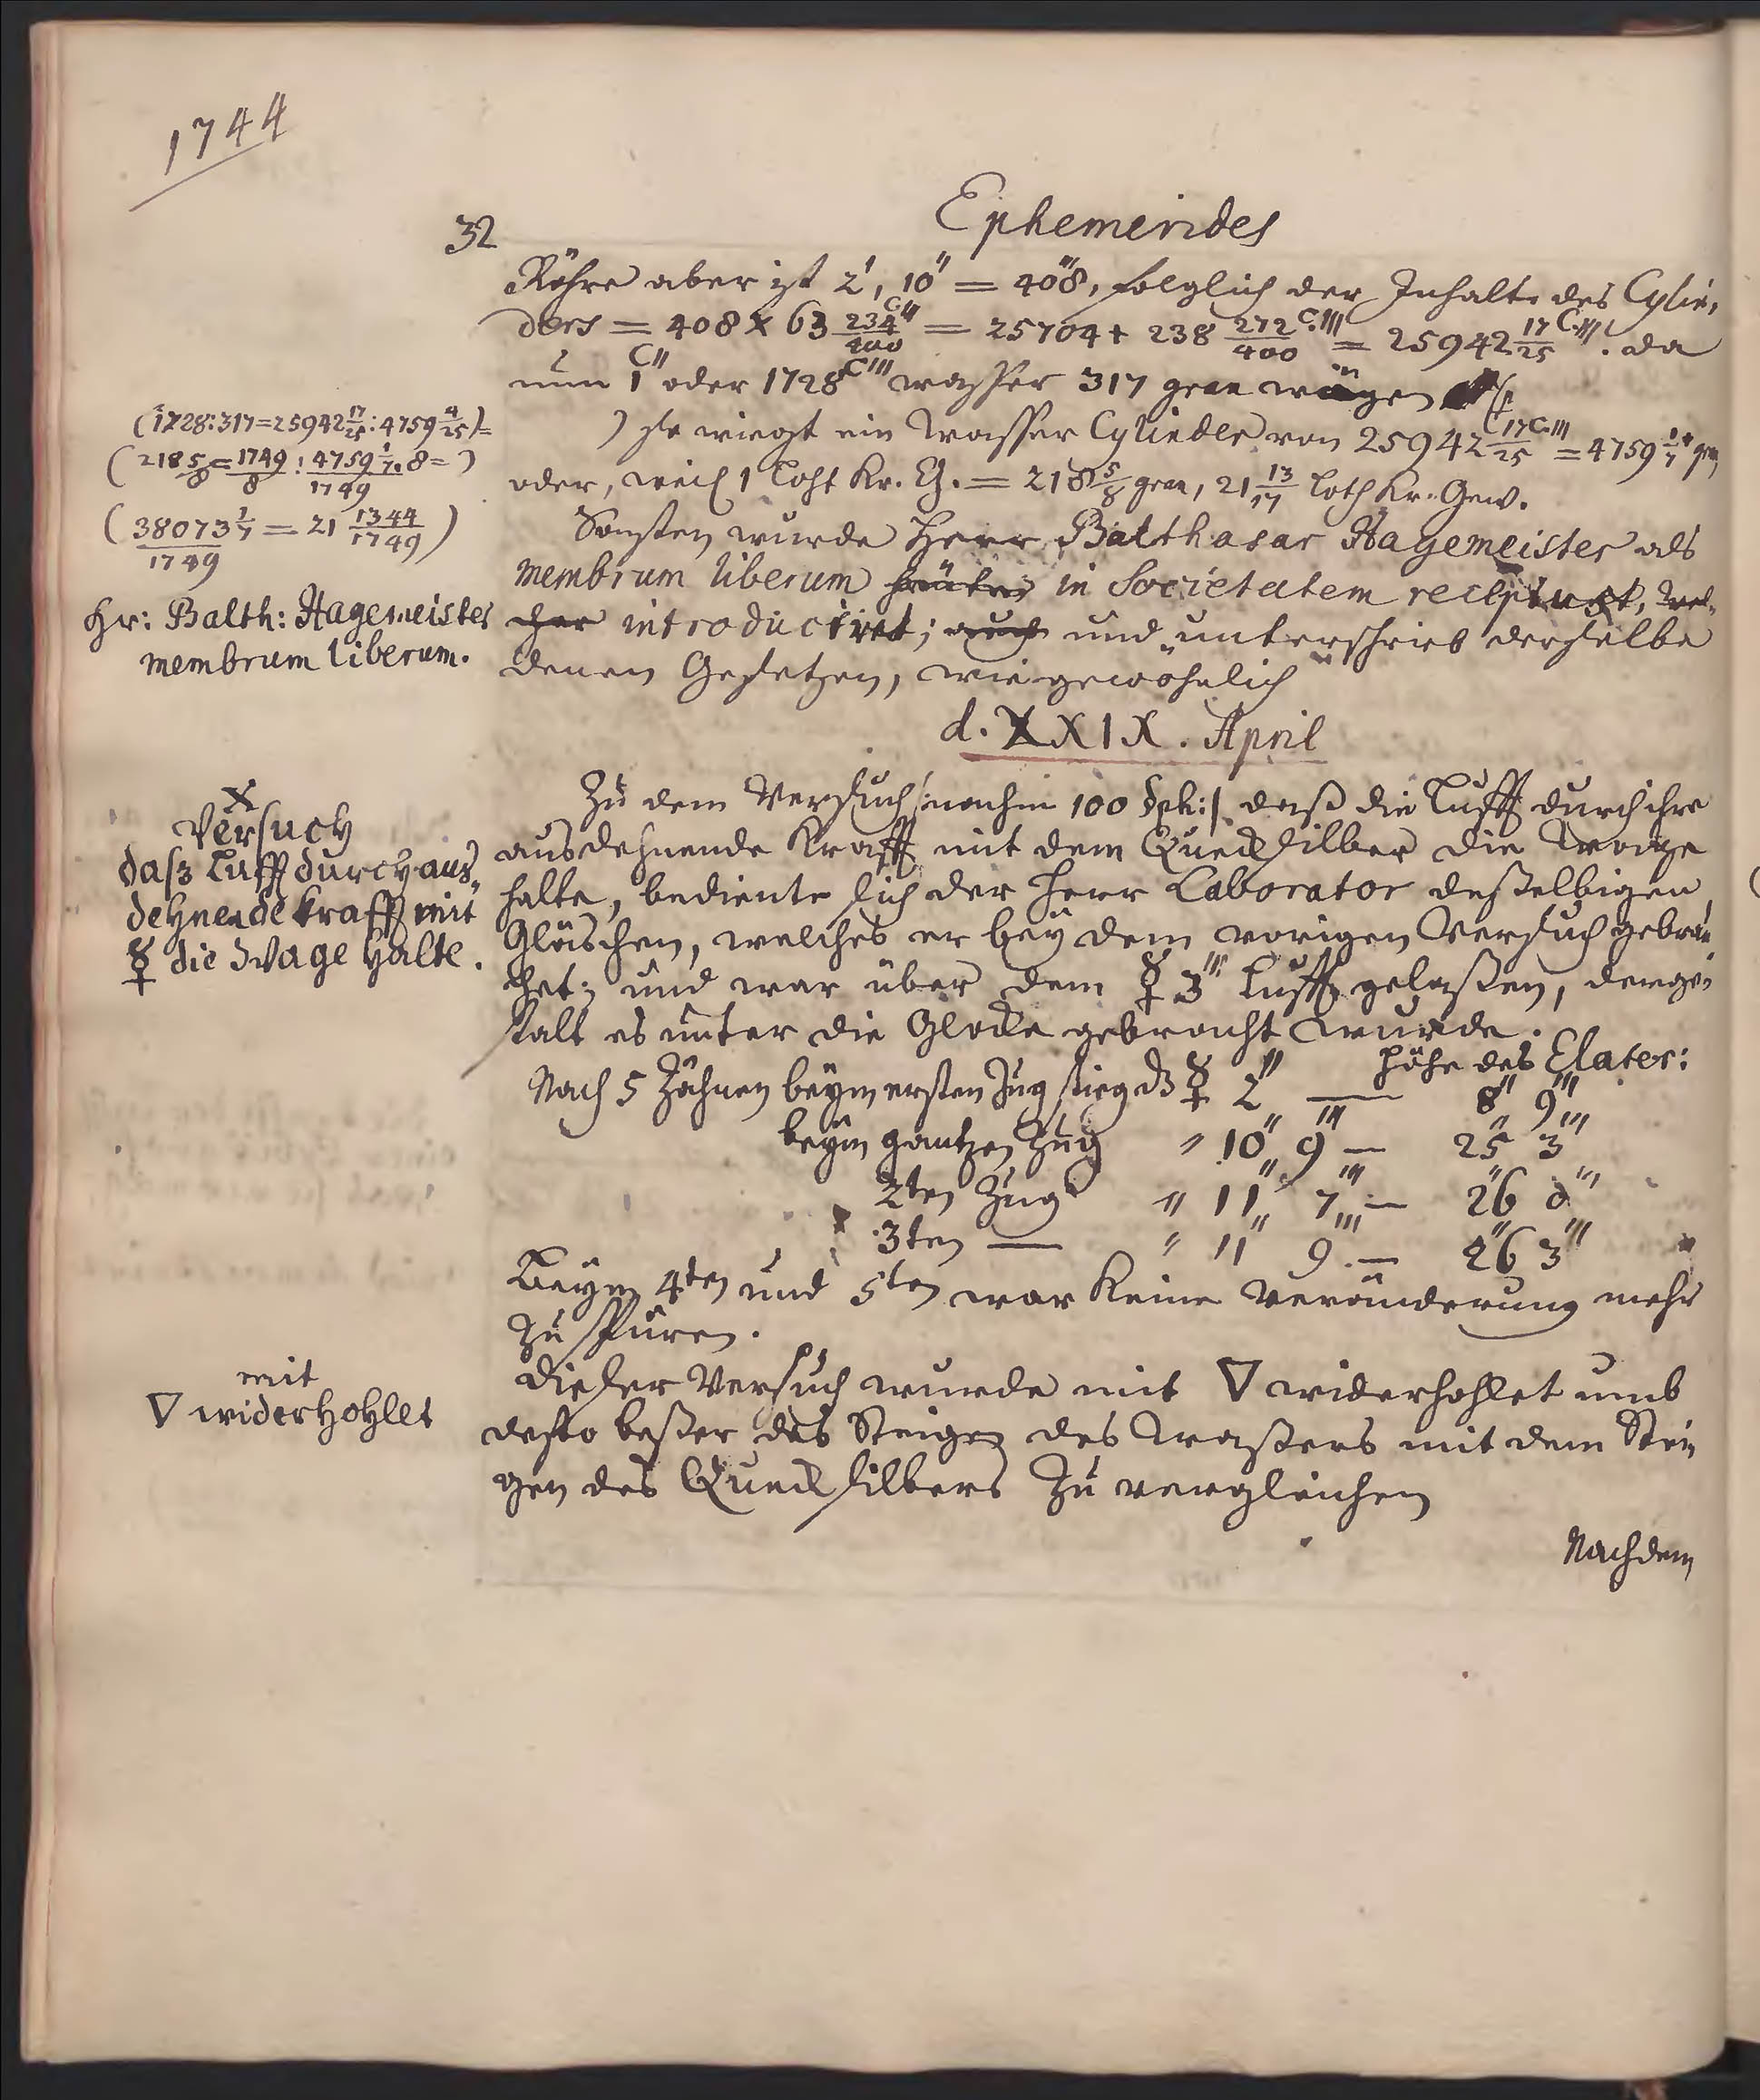 1744
32
Ephemerides
Röhre aber ist 2', 10'' = 408''', folglich der Inhalt des Cylin,
ders = 408 x 63 234/400 C''' = 25704 + 238 272/400 C.''' = 25942 17/25 C.'''. da
nun 1 C'' oder 1728 C''' wasser 317 gran wägen
(1728:317=25942 17/25:4759 4/25)=
) so wiegt ein Wasser Cylinder von 25942 17/25 C.''' = 4759 1/7 gran
(218 5/8 = 1749/8 : 4759 1/7 . 8 = )
1749
oder, weil 1 Loht Kr. G. = 218 5/8 gran, 21 13/17 Loth Kr. Gew.
(38073 1/7 / 1749 = 21 1344/1749)
Sonsten wurde Herr Balthasar Hagemeister als
membrum liberum heute in Societatem recipiret, wel,
Hr: Balth: Hagemeister
membrum liberum.
cher introduciret; auch und unterschrieb derselbe
denen Gesetzen, wie gewöhnlich
d. XXIX. April
X
Versuch
daß Lufft durch aus,
dehnende krafft mit
☿ die Wage halte.
Zu dem Versuch /:nach in 100 :/ daß die Lufft durch ihre
ausdehnende Krafft mit dem Queck silber die Wage
halte, bediente sich der Herr Laborator deßelbigen
Gläschen, welches er bey dem vorigen Versuch gebrau,
chet; und war über dem ☿ 3''' Lufft gelaßen, derge,
stalt es unter die Glocke gebracht wurde.
Höhe des Elater:
Nach 5 Zähnen beym ersten Zug stieg dz ☿ 2'' — 8'' 9'''
beym gantzen Zug " 10'' 9''' — 25'' 3'''
2ten Zug " 11'' 7''' — 26'' 0'''
3ten — " 11'' 9''' — 26'' 3'''
Beym 4ten und 5ten war keine Veränderung mehr
zu spüren.
mit
▽ widerhohlet
Dieser Versuch wurde mit ▽ widerhohlet umb
desto beßer das Steigen des Waßers mit dem Stei,
gen des Queck silbers zu vergleichen
Nachdem